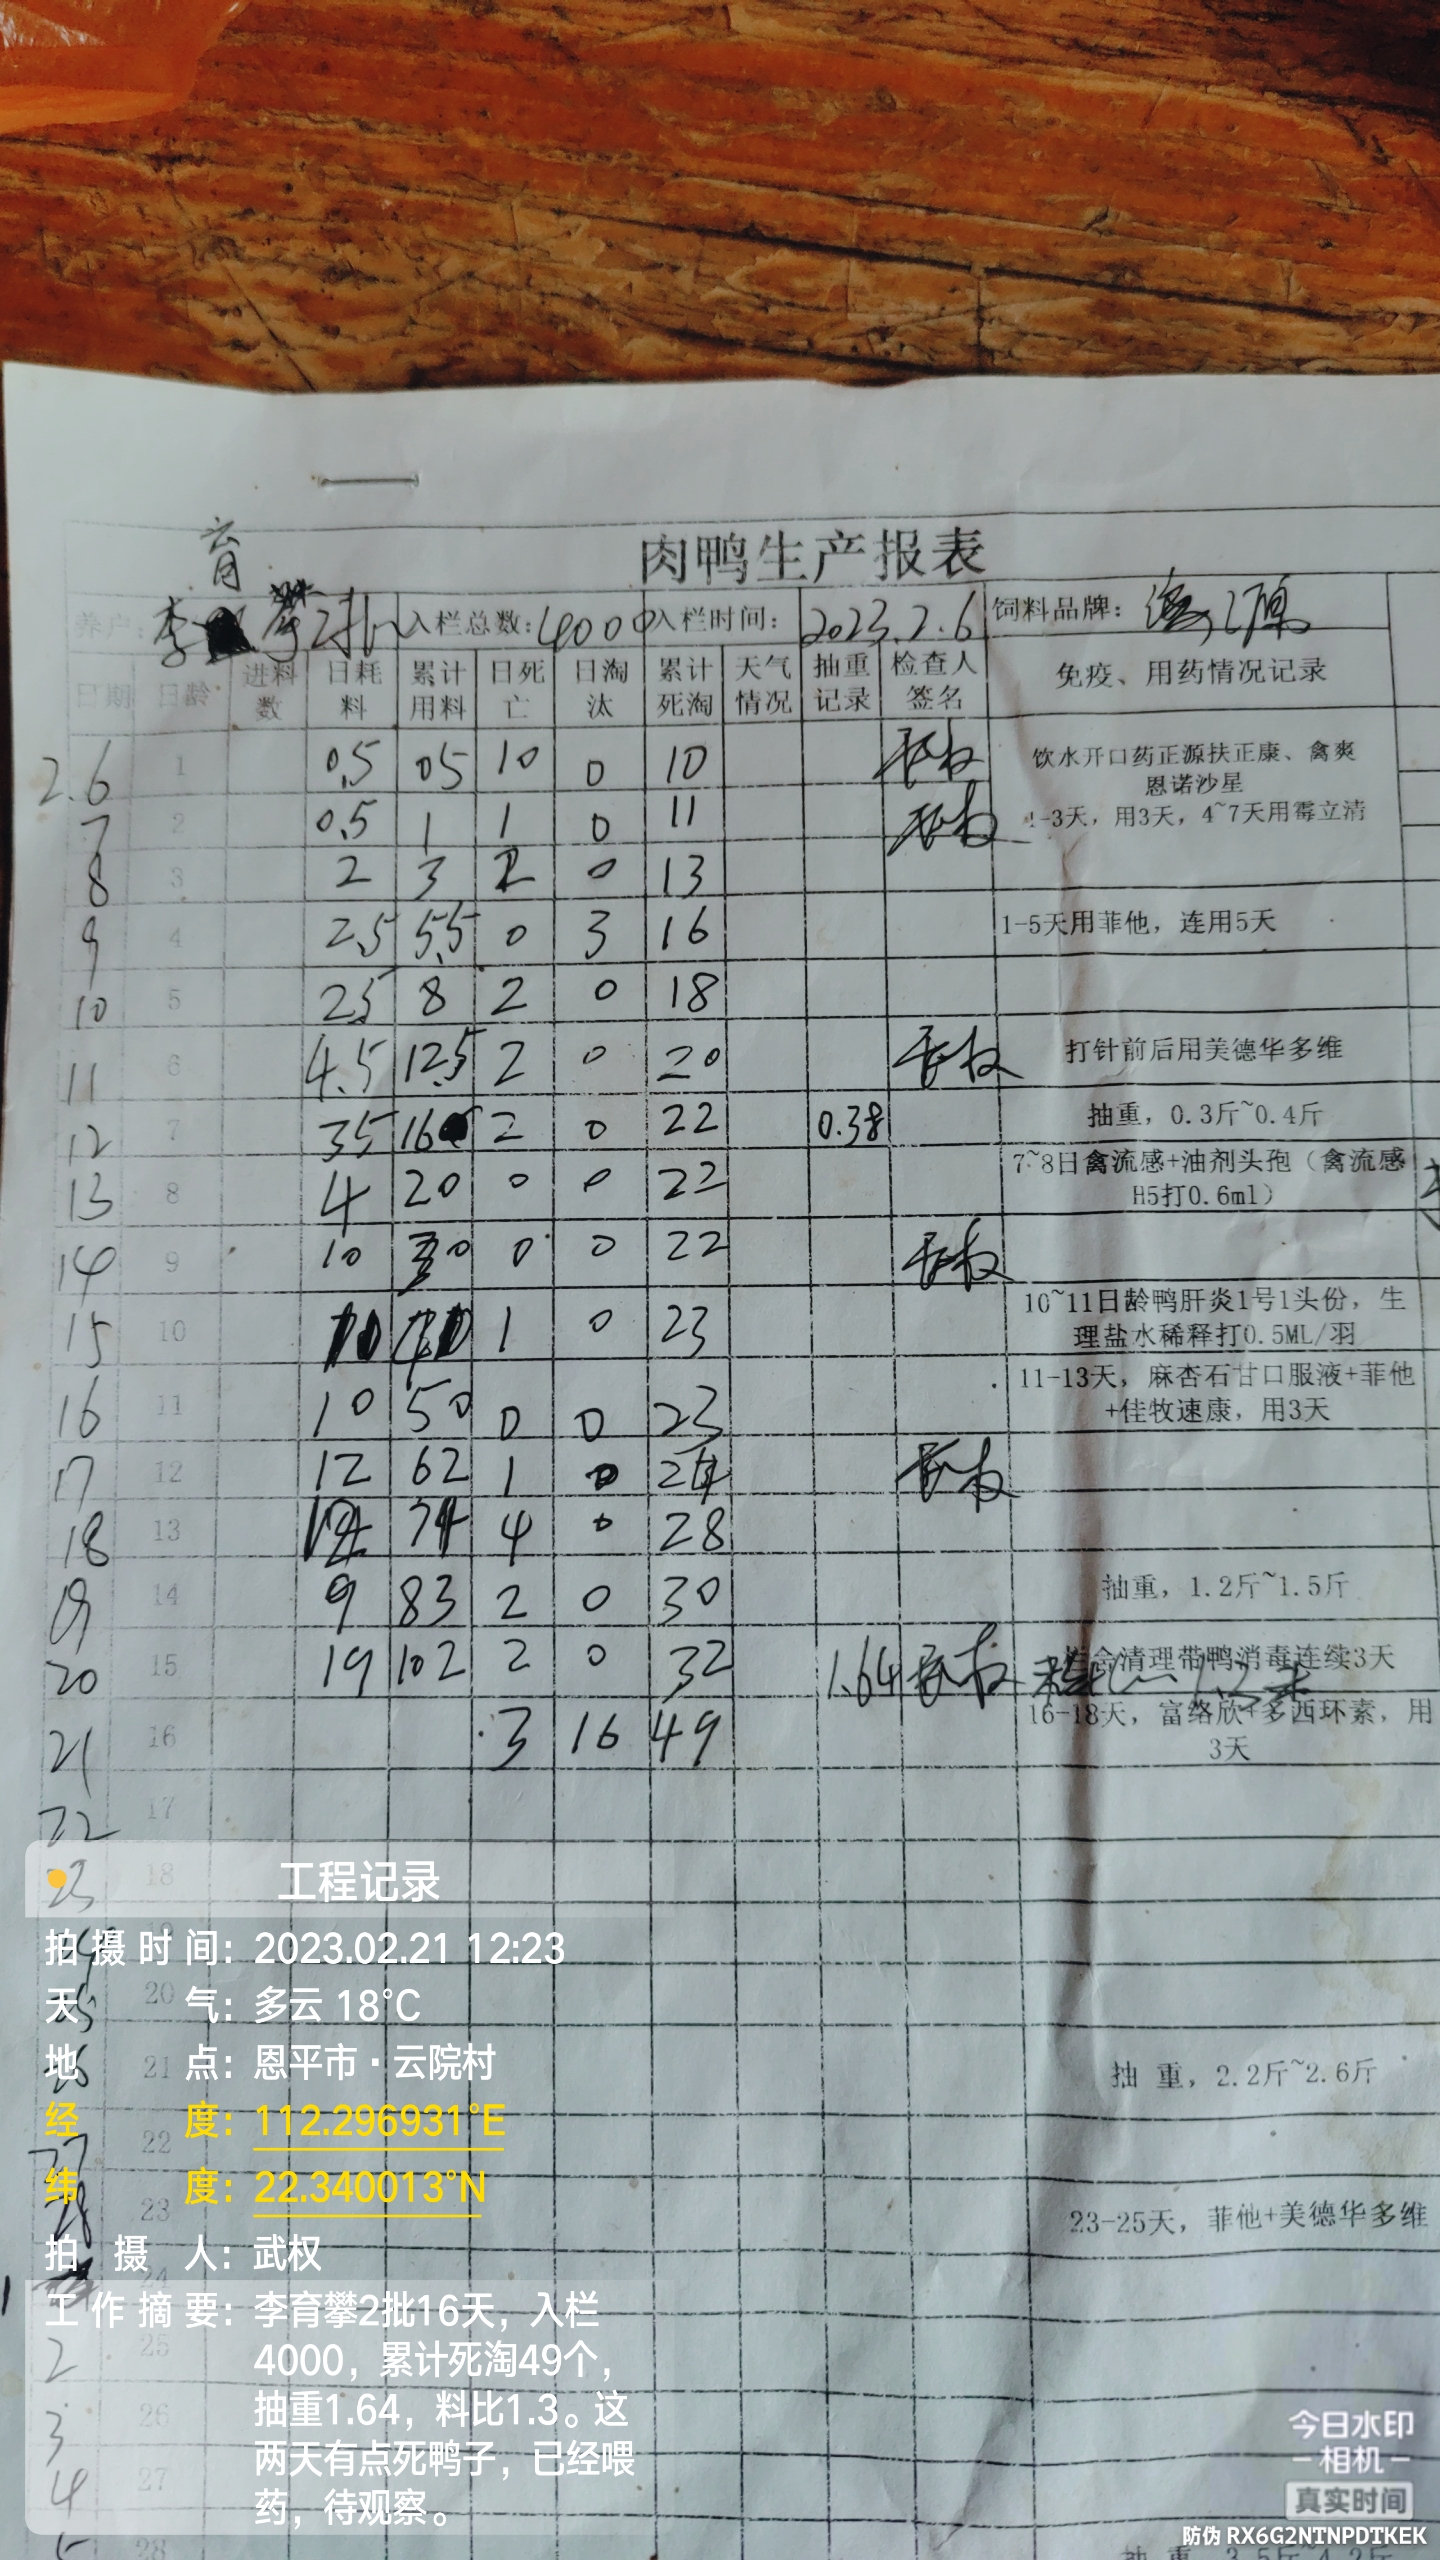 肉鸭生产报表
养户: 李育攀2批 入栏总数: 4000 入栏时间: 2023.2.6 饲料品牌:
日期 日龄 进料数 日耗料 累计用料 日死亡 日淘汰 累计死淘 天气情况 抽重记录 检查人签名 免疫、用药情况记录
2.6 1 0.5 0.5 10 0 10 武权 饮水开口药正源扶正康、禽爽
恩诺沙星
7 2 0.5 1 1 0 11 武权 1-3天，用3天，4~7天用霉立清
8 3 2 3 2 0 13
9 4 2.5 5.5 0 3 16 1-5天用菲他，连用5天
10 5 2.5 8 2 0 18
11 6 4.5 12.5 2 0 20 武权 打针前后用美德华多维
12 7 3.5 16 2 0 22 0.38 抽重，0.3斤~0.4斤
13 8 4 20 0 0 22 7~8日禽流感+油剂头孢（禽流感
H5打0.6ml）
14 9 10 30 0 0 22 武权
15 10 10 40 1 0 23 10~11日龄鸭肝炎1号1头份，生
理盐水稀释打0.5ML/羽
16 11 10 50 0 0 23 11-13天，麻杏石甘口服液+菲他
+佳牧速康，用3天
17 12 12 62 1 0 24 武权
18 13 12 74 4 0 28
19 14 9 83 2 0 30 抽重，1.2斤~1.5斤
20 15 19 102 2 0 32 1.64 武权 清理带鸭消毒连续3天
21 16 3 16 49 16-18天，富络欣+多西环素，用
3天
22 17
23 18
20
21 抽 重，2.2斤~2.6斤
27 22
28 23 23-25天，菲他+美德华多维
1 24
2 25
3 26
4 27
28
工程记录
拍摄时间: 2023.02.21 12:23
天气: 多云 18°C
地点: 恩平市·云院村
经度: 112.296931°E
纬度: 22.340013°N
拍摄人: 武权
工作摘要: 李育攀2批16天，入栏
4000，累计死淘49个，
抽重1.64，料比1.3。这
两天有点死鸭子，已经喂
药，待观察。
今日水印
-相机-
真实时间
防伪 RX6G2NTNPDTKEK